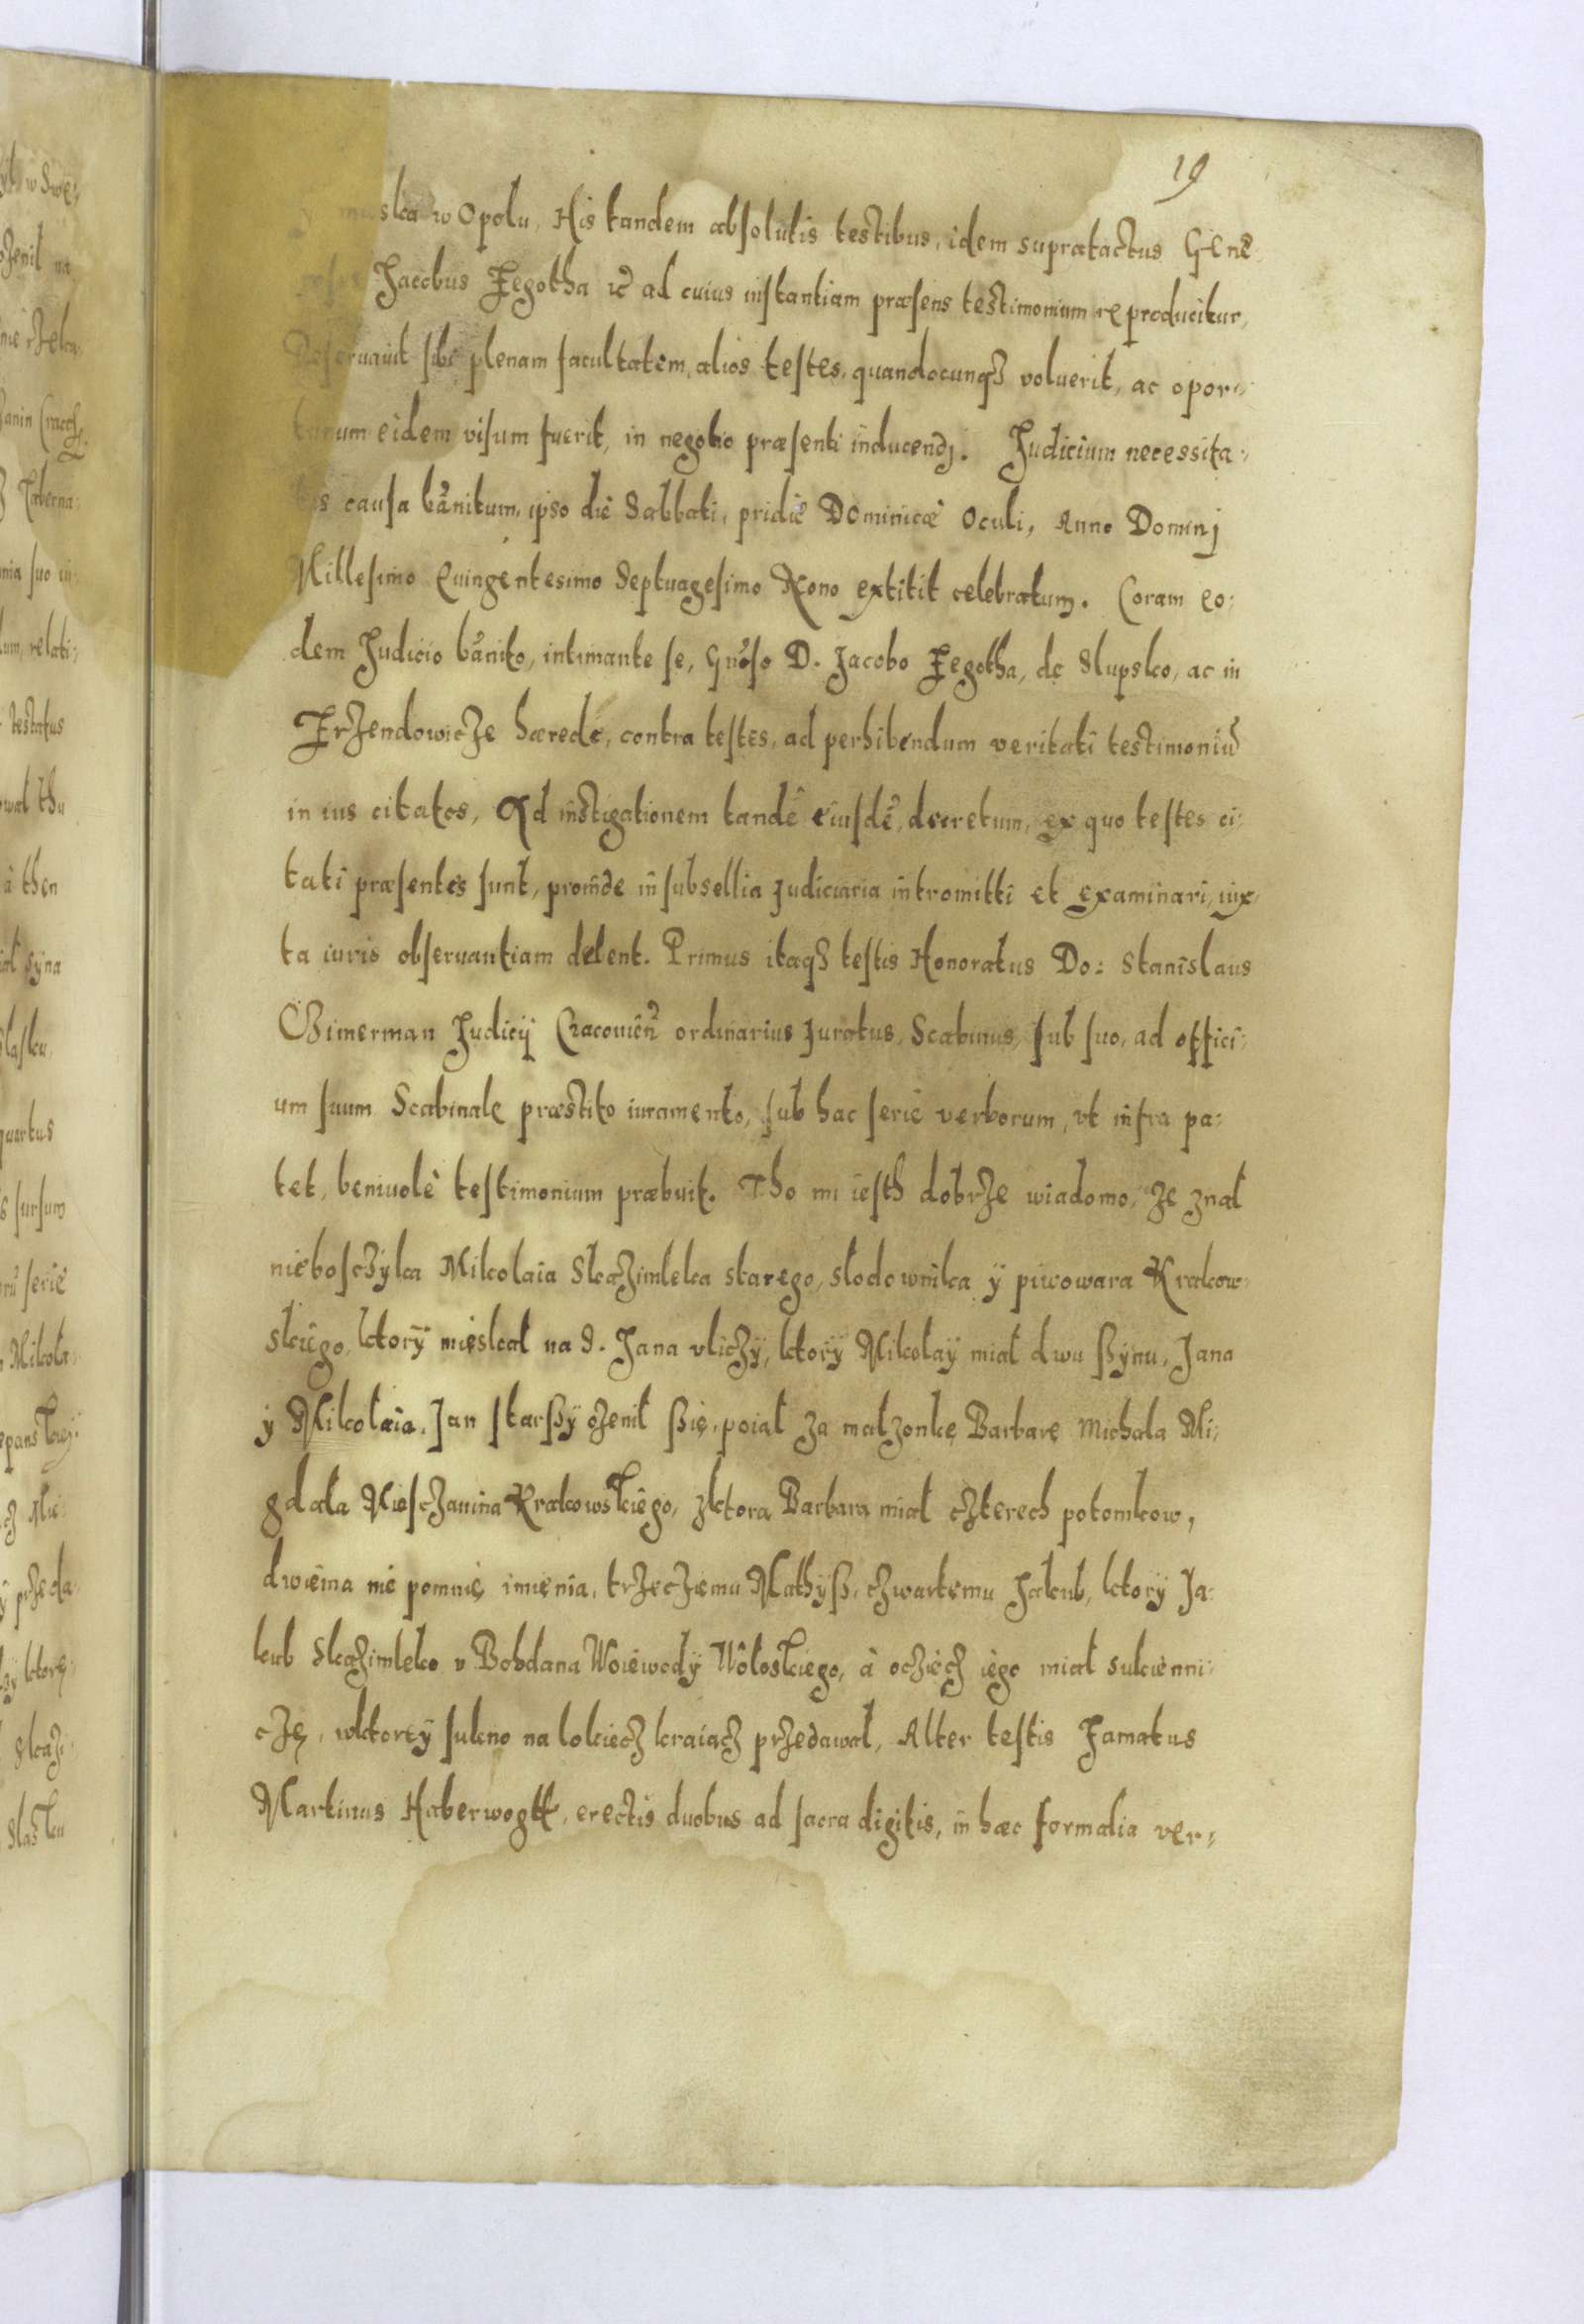 19
w Opolu, His tandem absolutis testibus, idem supratactus Gene
Jacobus Fegotha &c ad cuius instantiam præsens testimonium reproducitur,
Reseruauit sibi plenam facultatem, alios testes, quandocunqȝ voluerit, ac opor=
tunum eidem visum fuerit, in negotio præsenti inducendj. Judicium necessita=
tis causa bãnitum, ipso die Sabbati, pridie Dominicæ Oculi, Anno Dominj
Millesimo Quingentesimo Septuagesimo Nono extitit celebratum. Coram eo=
dem Judicio bãnito, intimante se, Gnõso D. Jacobo Fegotha, de Slupsko, ac in
Frzendowicze hærede, contra testes, ad perhibendum veritati testimoniũ
in ius citatos, Ad instigationem tandẽ eiusdẽ, decretum, ex quo testes ci=
tati præsentes sunt, proinde in subsellia Judiciaria intromitti et examinari, iux=
ta iuris obseruantiam debent. Primus itaqȝ testis Honoratus Do: Stanislaus
Czimerman Judicij Cracouieñ ordinarius Juratus, Scabinus, sub suo, ad offici=
um suum Scabinale præstito iuramento, sub hac serie verborum, vt infra pa=
tet, beniuolè testimonium præbuit. Tho mi iesth dobrze wiadomo, ze znał
nieboscżyka Mikolaia Skazimleka starego, słodownika ÿ piwowara Krakow=
skiego, ktorÿ mięskał na S. Jana vliczÿ, ktorÿ Mikołaÿ miał dwu ßÿnu, Jana
ÿ Mikołaia. Jan starßÿ ożenił ßię, poiał za małżonkę Barbarę Michała Mi=
gdała Miesczanina Krakowskiego, zktorą Barbarą miał czterech potomkow,
dwiema nie pomnię imienia, trzecziemu Mathÿß, czwartemu Jakub, ktorÿ Ja=
kub Skazimleko v Bohdana Woiewodÿ Wołoskiego, à oczięcz iego miał sukienni=
czę, wktorey sukno na łokiecz kraiącz przedawał, Alter testis Famatus
Martinus Haberwogtt, erectis duobus ad sacra digitis, in hæc formalia ver=